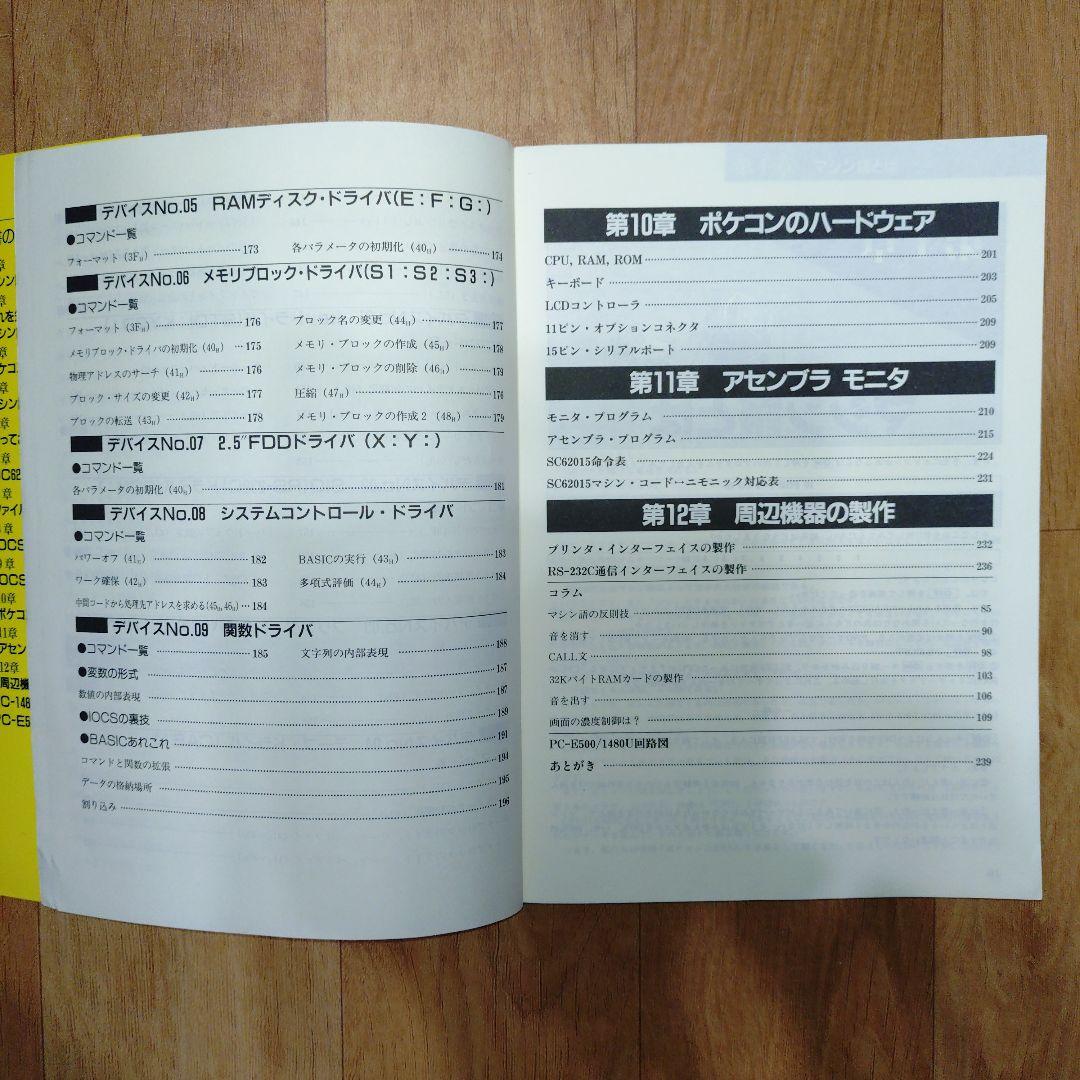 デバイスNo.05 RAMディスク・ドライバ(E:F:G:)
●コマンド一覧
フォーマット(3FH) 173 各パラメータの初期化(40H) 174
デバイスNo.06 メモリブロック・ドライバ(S1:S2:S3:)
●コマンド一覧
フォーマット(3FH) 176 ブロック名の変更(44H) 177
メモリブロック・ドライバの初期化(40H) 175 メモリ・ブロックの作成(45H) 178
物理アドレスのサーチ(41H) 176 メモリ・ブロックの削除(46H) 179
ブロック・サイズの変更(42H) 177 圧縮(47H) 176
ブロックの転送(43H) 178 メモリ・ブロックの作成2(48H) 179
デバイスNo.07 2.5″FDDドライバ(X:Y:)
●コマンド一覧
各パラメータの初期化(40H) 181
デバイスNo.08 システムコントロール・ドライバ
●コマンド一覧
パワーオフ(41H) 182 BASICの実行(43H) 183
ワーク確保(42H) 183 多項式評価(44H) 184
中間コードから処理先アドレスを求める(45H, 46H) 184
デバイスNo.09 関数ドライバ
●コマンド一覧 185 文字列の内部表現 188
●変数の形式 187
数値の内部表現 187
●IOCSの裏技 189
●BASICあれこれ 191
コマンドと関数の拡張 194
データの格納場所 195
割り込み 196
第10章 ポケコンのハードウェア
CPU, RAM, ROM 201
キーボード 203
LCDコントローラ 205
11ピン・オプションコネクタ 209
15ピン・シリアルポート 209
第11章 アセンブラ モニタ
モニタ・プログラム 210
アセンブラ・プログラム 215
SC62015命令表 224
SC62015マシン・コード↔ニモニック対応表 231
第12章 周辺機器の製作
プリンタ・インターフェイスの製作 232
RS-232C通信インターフェイスの製作 236
コラム
マシン語の反則技 85
音を消す 90
CALL文 98
32KバイトRAMカードの製作 103
音を出す 106
画面の濃度制御は? 109
PC-E500/1480U回路図
あとがき 239